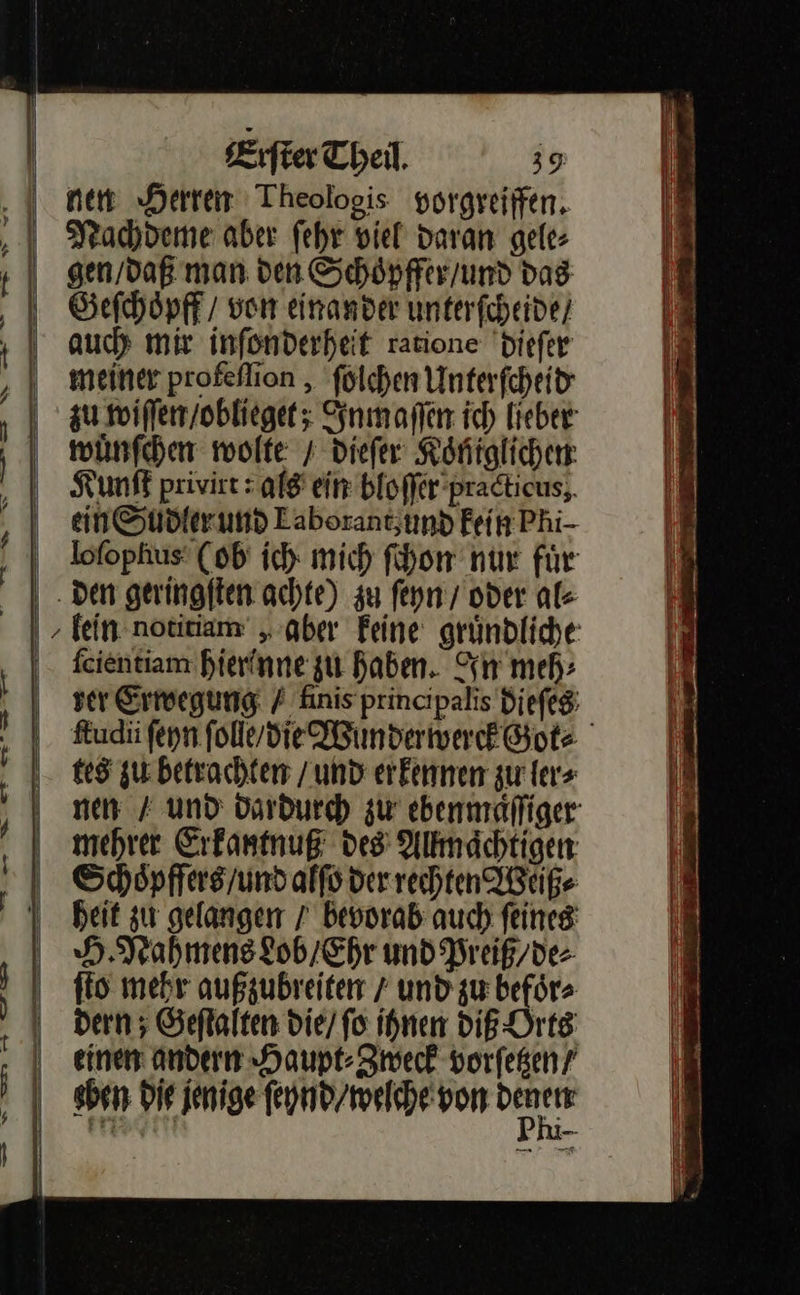 Erſter Theil. 39
nen Herren Theologis vorgreiffen.
Nachdeme aber ſehr viel daran gele⸗
gen/daß man den Schoͤpffer/und das
Geſchoͤpff / von einander unterſcheide/
auch mir inſonderheit ratione dieſer
meiner profeſſion, ſolchen Unterſcheid
zu wiſſen/oblieget; Inmaſſen ich lieber
wuͤnſchen wolte / dieſer Koͤñiglichen
Kunſt privirt: als ein bloſſer practicus,
ein Sudler und Laborant, und kein Phi-
loſophus (ob ich mich ſchon nur fuͤr
den geringſten achte) zu ſeyn / oder al⸗
lein notitiam, aber keine gruͤndliche
ſcientiam hierinne zu haben. In meh⸗
rer Erwegung / finis principalis dieſes
ſtudii ſeyn ſolle/die Wunderwerck Got⸗
tes zu betrachten / und erkennen zu ler⸗
nen / und dardurch zu ebenmaͤſſiger
mehrer Erkantnuß des Allmaͤchtigen
Schoͤpffers/und alſo der rechten Weiß⸗
heit zu gelangen / bevorab auch ſeines
H. Nahmens Lob/Ehr und Preiß/de⸗
ſto mehr außzubreiten / und zu befoͤr⸗
dern; Geſtalten die/ ſo ihnen diß Orts
einen andern Haupt⸗Zweck vorſetzen/
eben die jenige ſeynd/welche von denen
Phi-